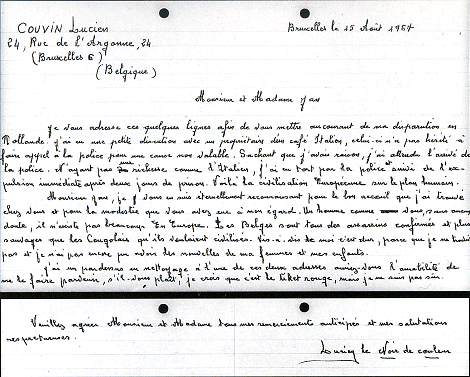 COUVIN Lucien
24, Rue de l'Argonne, 24
(Bruxelles 6)
(Belgique)
Bruxelles le 15 Août 1967
Monsieur et Madame
Je vous adresse ces quelques lignes afin de vous mettre au courant de ma disparution en
Hollande. j'ai eu une petite discution avec un propriétaire des café Italien, celui-ci n'a pas hésité à
faire appel à la police pour une cause non valable. Sachant que j'avais raison, j'ai attendu l'arrivé de
la police. N'ayant pas une richesse comme l'Italien, j'ai eu tort par la police et suivi de l'ex-
pulsion immédiate après deux jours de prison. Voilà la civilisation Européenne sur le plan humain.
Monsieur, je vous en suis éternellement reconnaissant pour le bon accueil que j'ai trouvé
chez vous et pour la modestie que vous avez eue à mon égard. Un homme comme vous, sans aucun
doute, il n'existe pas beaucoup En Europe. Les Belges sont tous des assassins confirmés et plus
sauvages que les Congolais qu'ils voulaient civilisés. Vis-à-vis de moi c'est dur, parce que je ne
pas et je n'ai pas encore pu avoir des nouvelles de ma femmes et mes enfants.
J'ai un pardessus en nettoyage à l'une de ces deux adresses auriez-vous l'amabilité de
me le faire parvenir, s'il-vous plait, je crois que c'est le ticket rouge, mais je ne suis pas sûr.
Veuillez agréer Monsieur et Madame tous mes remerciements anticipés et mes salutations
respectueuses.
Lucien le Noir de couleur